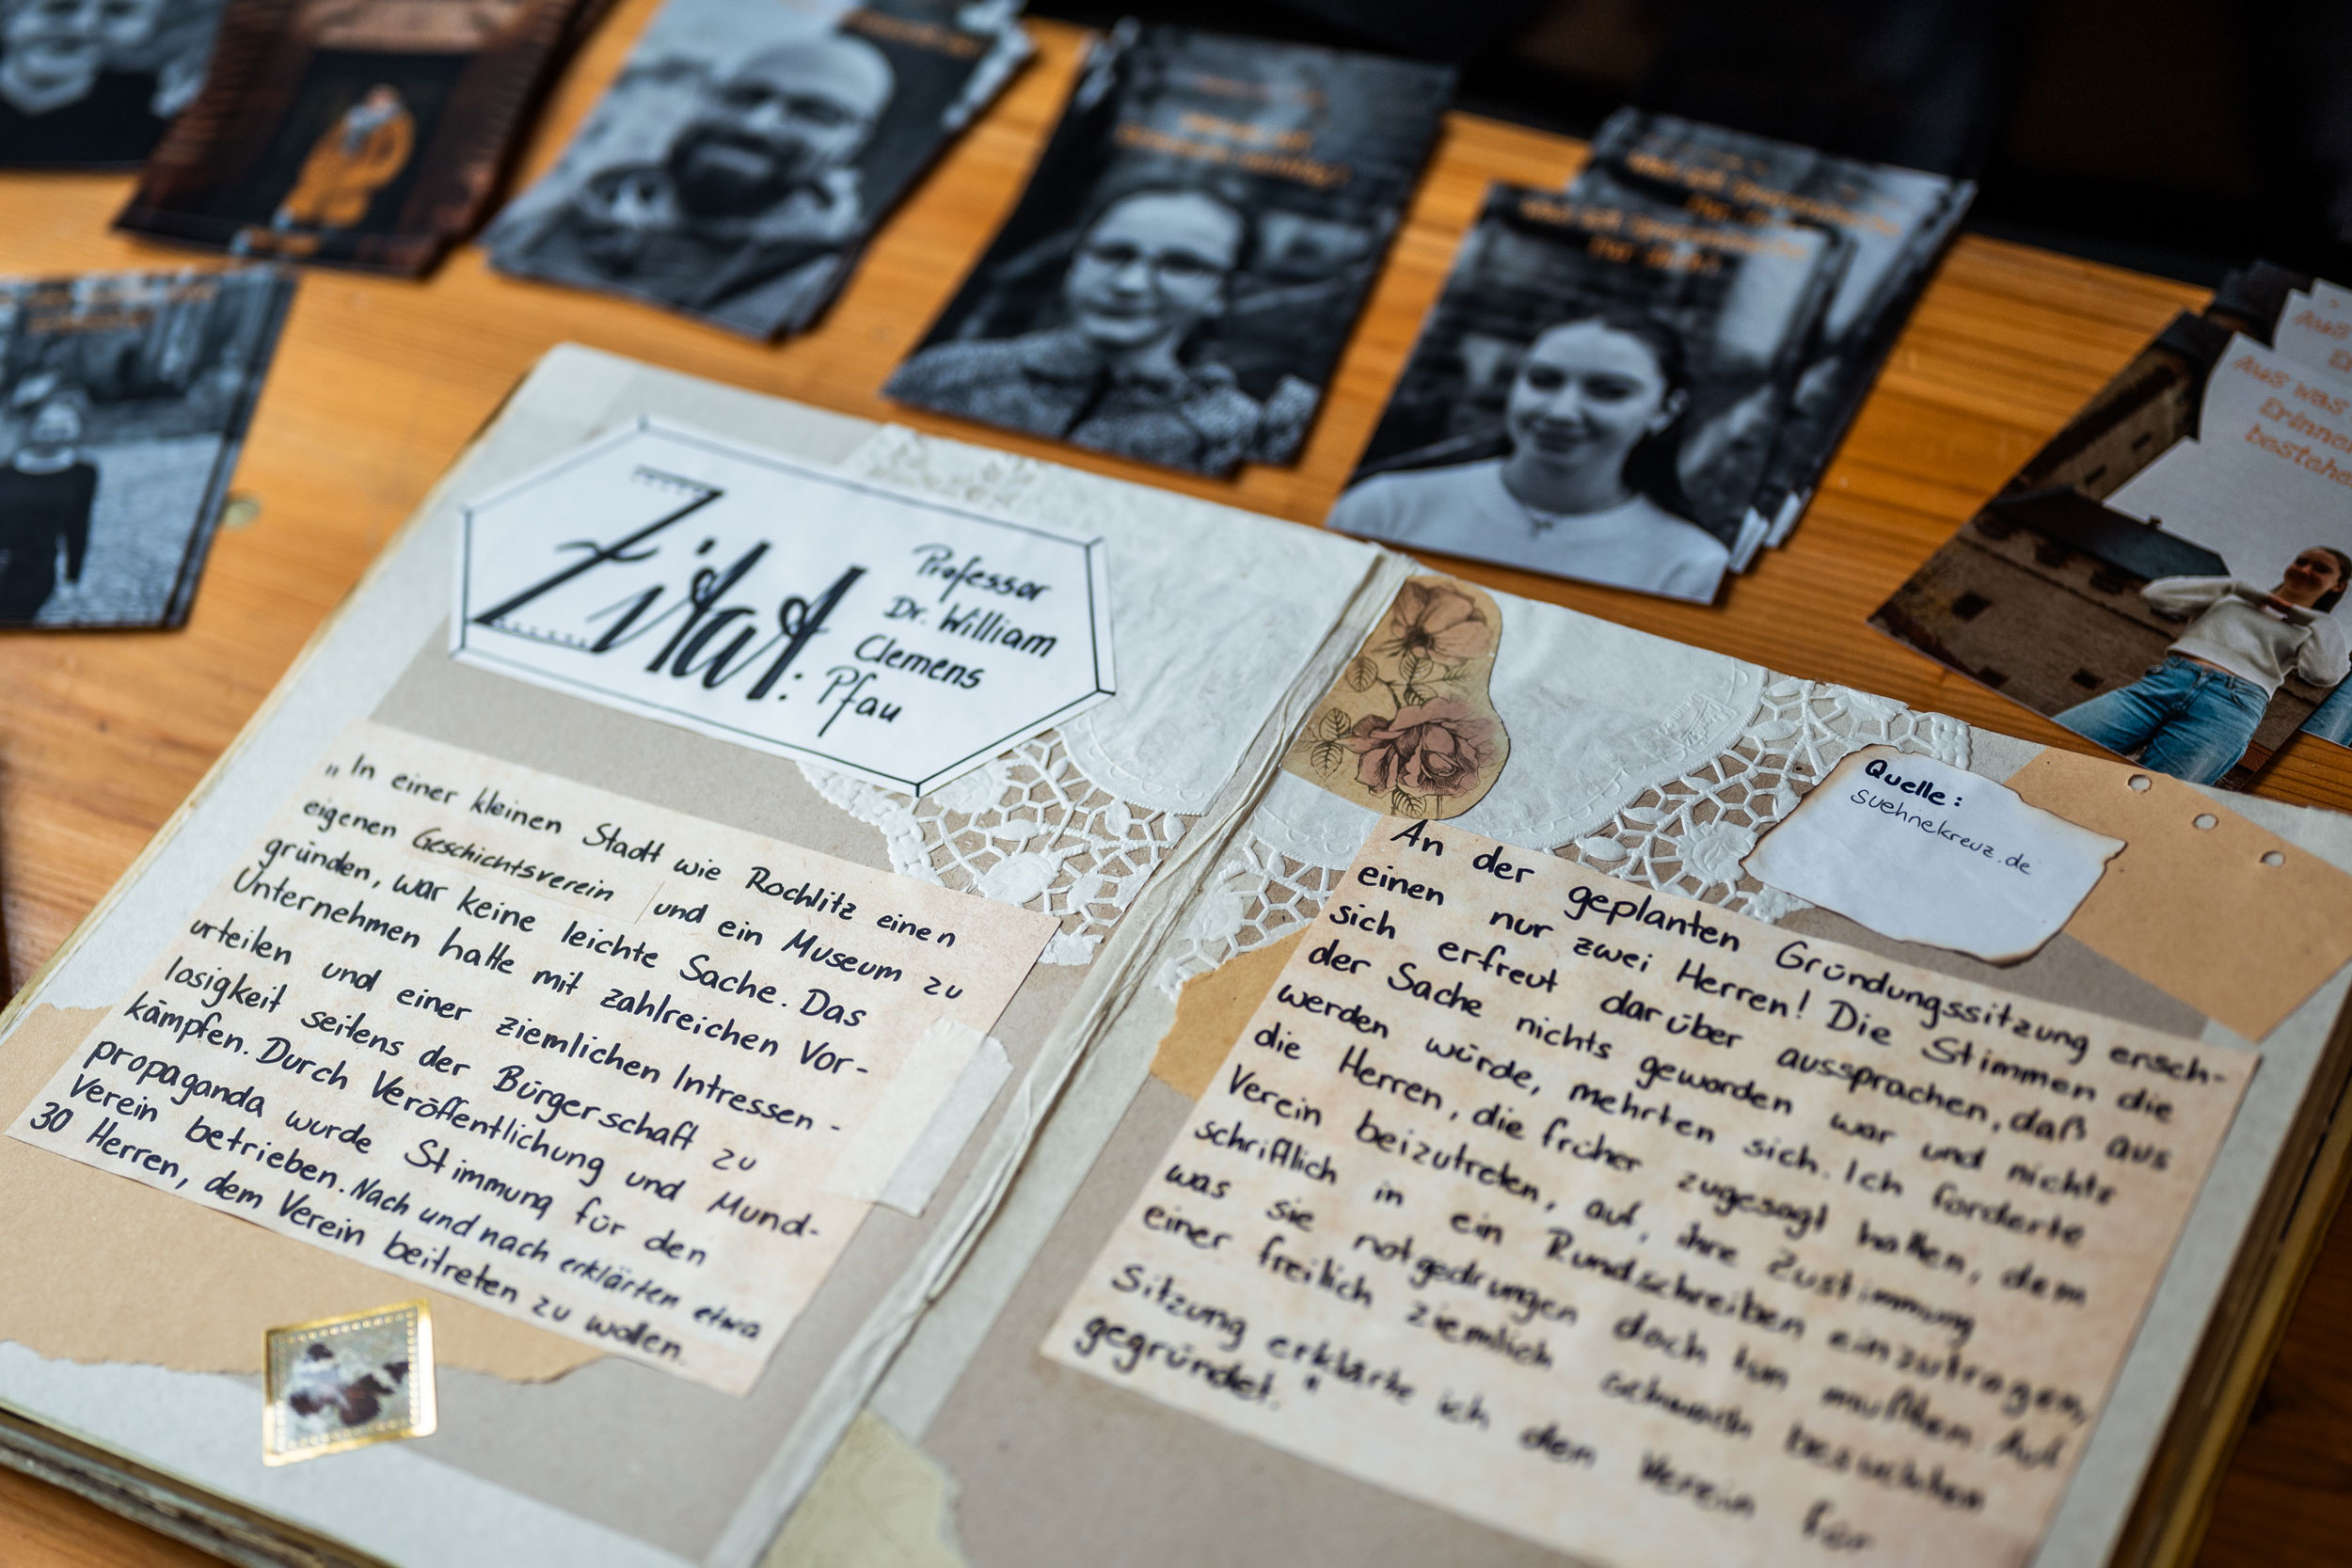 Zitat:
Professor
Dr. William
Clemens
Pfau
„In einer kleinen Stadt wie Rochlitz einen
eigenen Geschichtsverein und ein Museum zu
gründen, war keine leichte Sache. Das
Unternehmen hatte mit zahlreichen Vor-
urteilen und einer ziemlichen Intressen-
losigkeit seitens der Bürgerschaft zu
kämpfen. Durch Veröffentlichung und Mund-
propaganda wurde Stimmung für den
Verein betrieben. Nach und nach erklärten etwa
30 Herren, dem Verein beitreten zu wollen.
Quelle:
suehnekreuz.de
An der geplanten Gründungssitzung ersch-
einen nur zwei Herren! Die Stimmen die
sich erfreut darüber aussprachen, daß aus
der Sache nichts geworden war und nichts
werden würde, mehrten sich. Ich forderte
die Herren, die früher zugesagt hatten, dem
Verein beizutreten, auf, ihre Zustimmung
schriftlich in ein Rundschreiben einzutragen,
was sie notgedrungen doch tun mußten. Auf
einer freilich ziemlich schwach besuchten
Sitzung erklärte ich den Verein für
gegründet."
Aus was